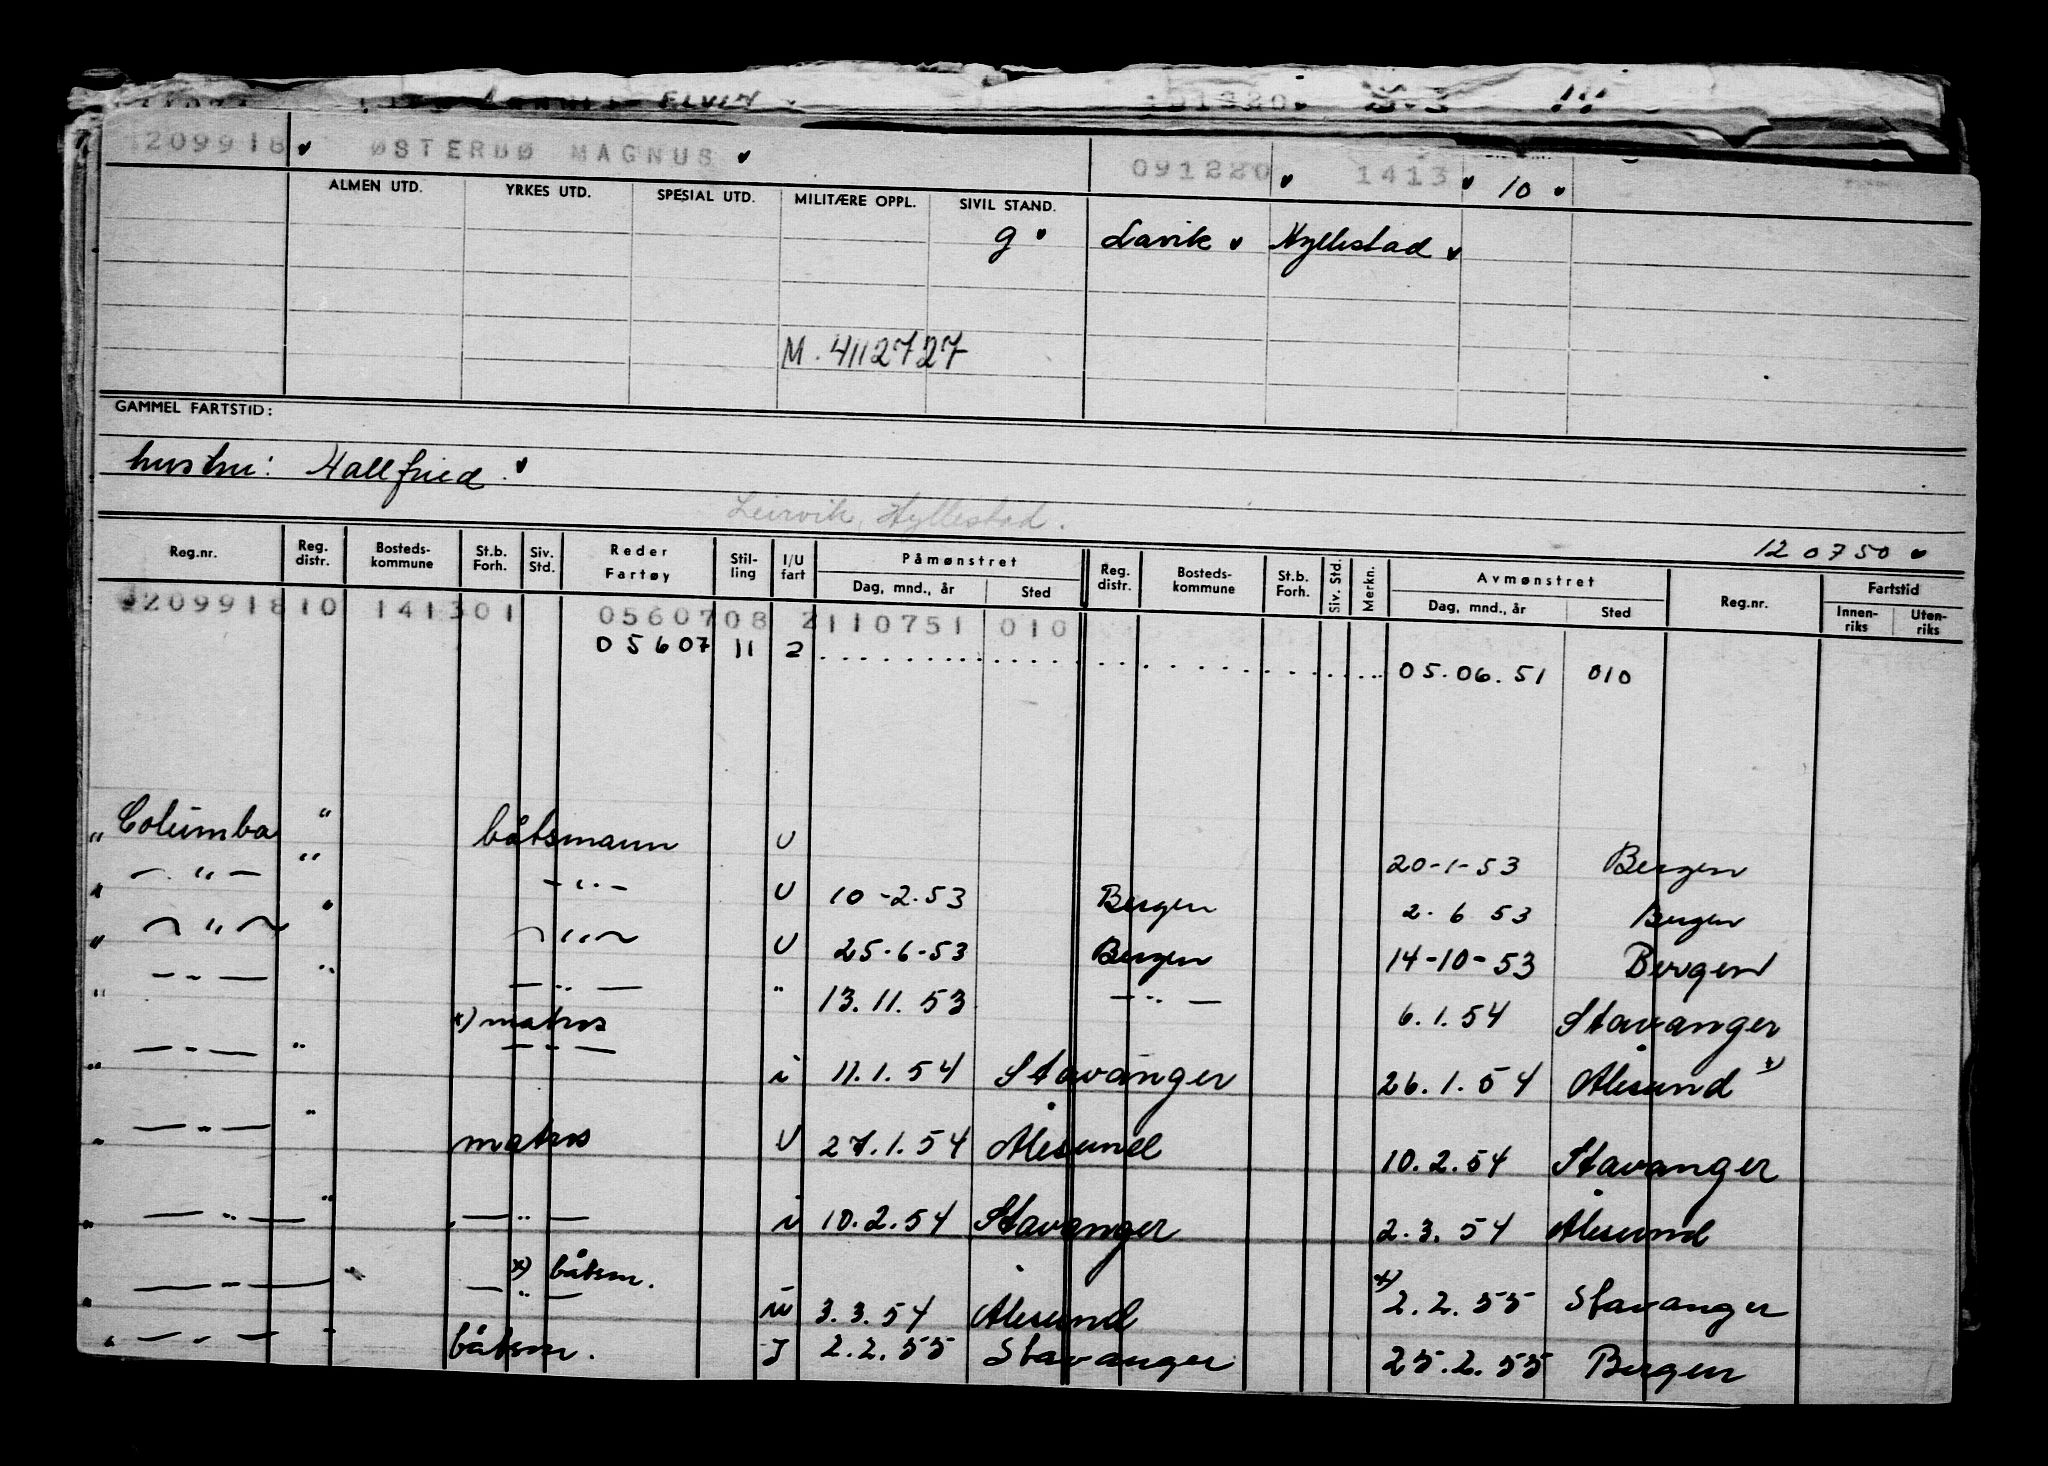 ELVIN
209918 ØSTERBØ MAGNUS 091220 1413 10
ALMEN UTD. YRKES UTD. SPESIAL UTD. MILITÆRE OPPL. SIVIL STAND.
g Lavik Hyllestad
M. 4112727
GAMMEL FARTSTID:
hustru: Hallfried.
Leirvik, Hyllestad.
120750
Reg.nr. Reg. distr. Bosteds-kommune St.b. Forh. Siv. Std. Reder Fartøy Stil-ling I/U fart Påmønstret Dag, mnd., år Sted Reg. distr. Bosteds-kommune St.b. Forh. Siv. Std. Merkn. Avmønstret Dag, mnd., år Sted Reg.nr. Fartstid Innen-riks Uten-riks
20991810 141301 0560708 2110751 010
05607 11 2 05.06.51 010
" Columba " båtsmann U 20-1-53 Bergen
" — " — " — " — U 10-2-53 Bergen 2.6 53 Bergen
" — " — " — " — U 25-6-53 Bergen 14-10-53 Bergen
" — " — " — " — " 13.11.53 — " — 6.1.54 Stavanger
x) matros
" — " — " — " — i 11.1.54 Stavanger 26.1.54 Ålesund x)
" — " — " matros U 27.1.54 Ålesund 10.2.54 Stavanger
" — " — " — " — i 10.2.54 Stavanger 2.3.54 Ålesund
x) båtsm.
" — " — " — " — 3.3.54 Ålesund x) 2.2.55 Stavanger
" — " — " båtsm. I 2.2.55 Stavanger 25.2.55 Bergen